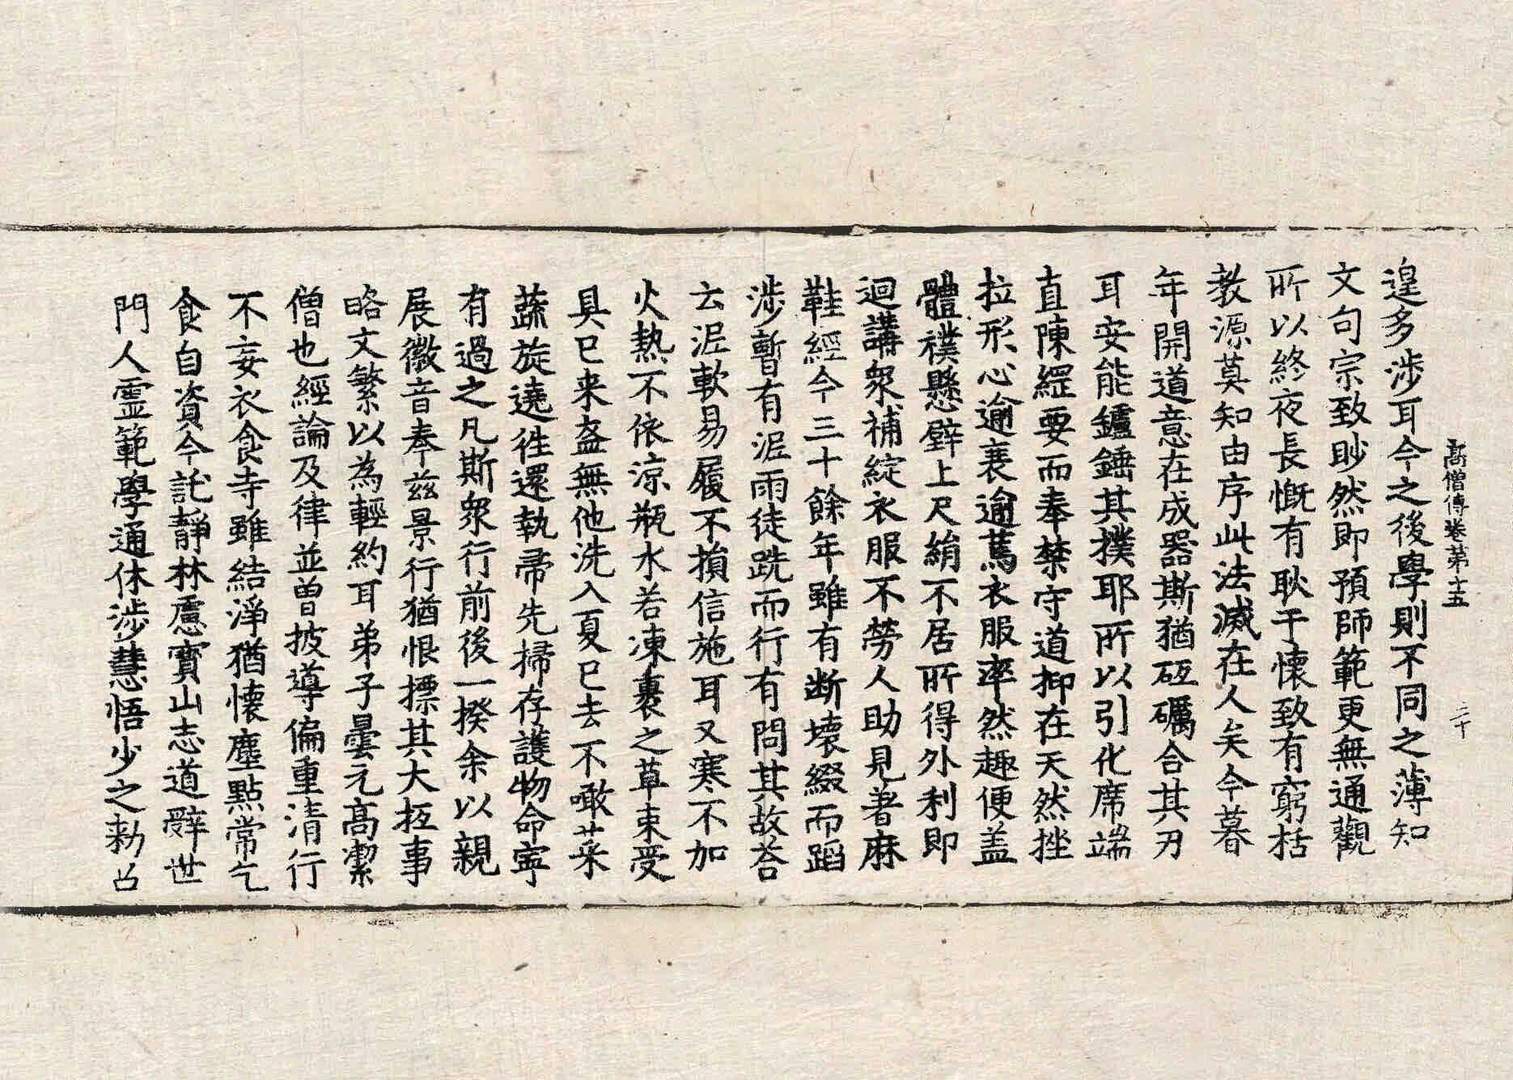 高僧傳卷第十五　二十
遑多涉耳今之後學則不同之薄知
文句宗致眇然即預師範更無通觀
所以終夜長慨有耿于懷致有窮括
教源莫知由序此法滅在人矣今暮
年開道意在成器斯猶砥礪合其刃
耳安能鑪錘其撲耶所以引化席端
直陳綱要而奉禁守道抑在天然挫
拉形心逾衰逾篤衣服率然趣便盖
體襆懸壁上尺絹不居所得外利即
迴講衆補綻衣服不勞人助見著麻
鞋經今三十餘年雖有断壞綴而蹈
涉暫有泥雨徒跣而行有問其故荅
云泥軟易履不損信施耳又寒不加
火熱不依涼瓶水若凍裹之草束受
具已来盋無他洗入夏已去不噉菜
蔬旋遶往還執帚先掃存護物命寧
有過之凡斯衆行前後一揆余以親
展徽音奉茲景行猶恨摽其大抵事
略文繁以為輕約耳弟子曇元高潔
僧也經論及律並曽披導偏重清行
不妄衣食寺雖結淨猶懷塵點常乞
食自資今託靜林慮寳山志道辤世
門人霊範學通休涉慧悟少之勑召